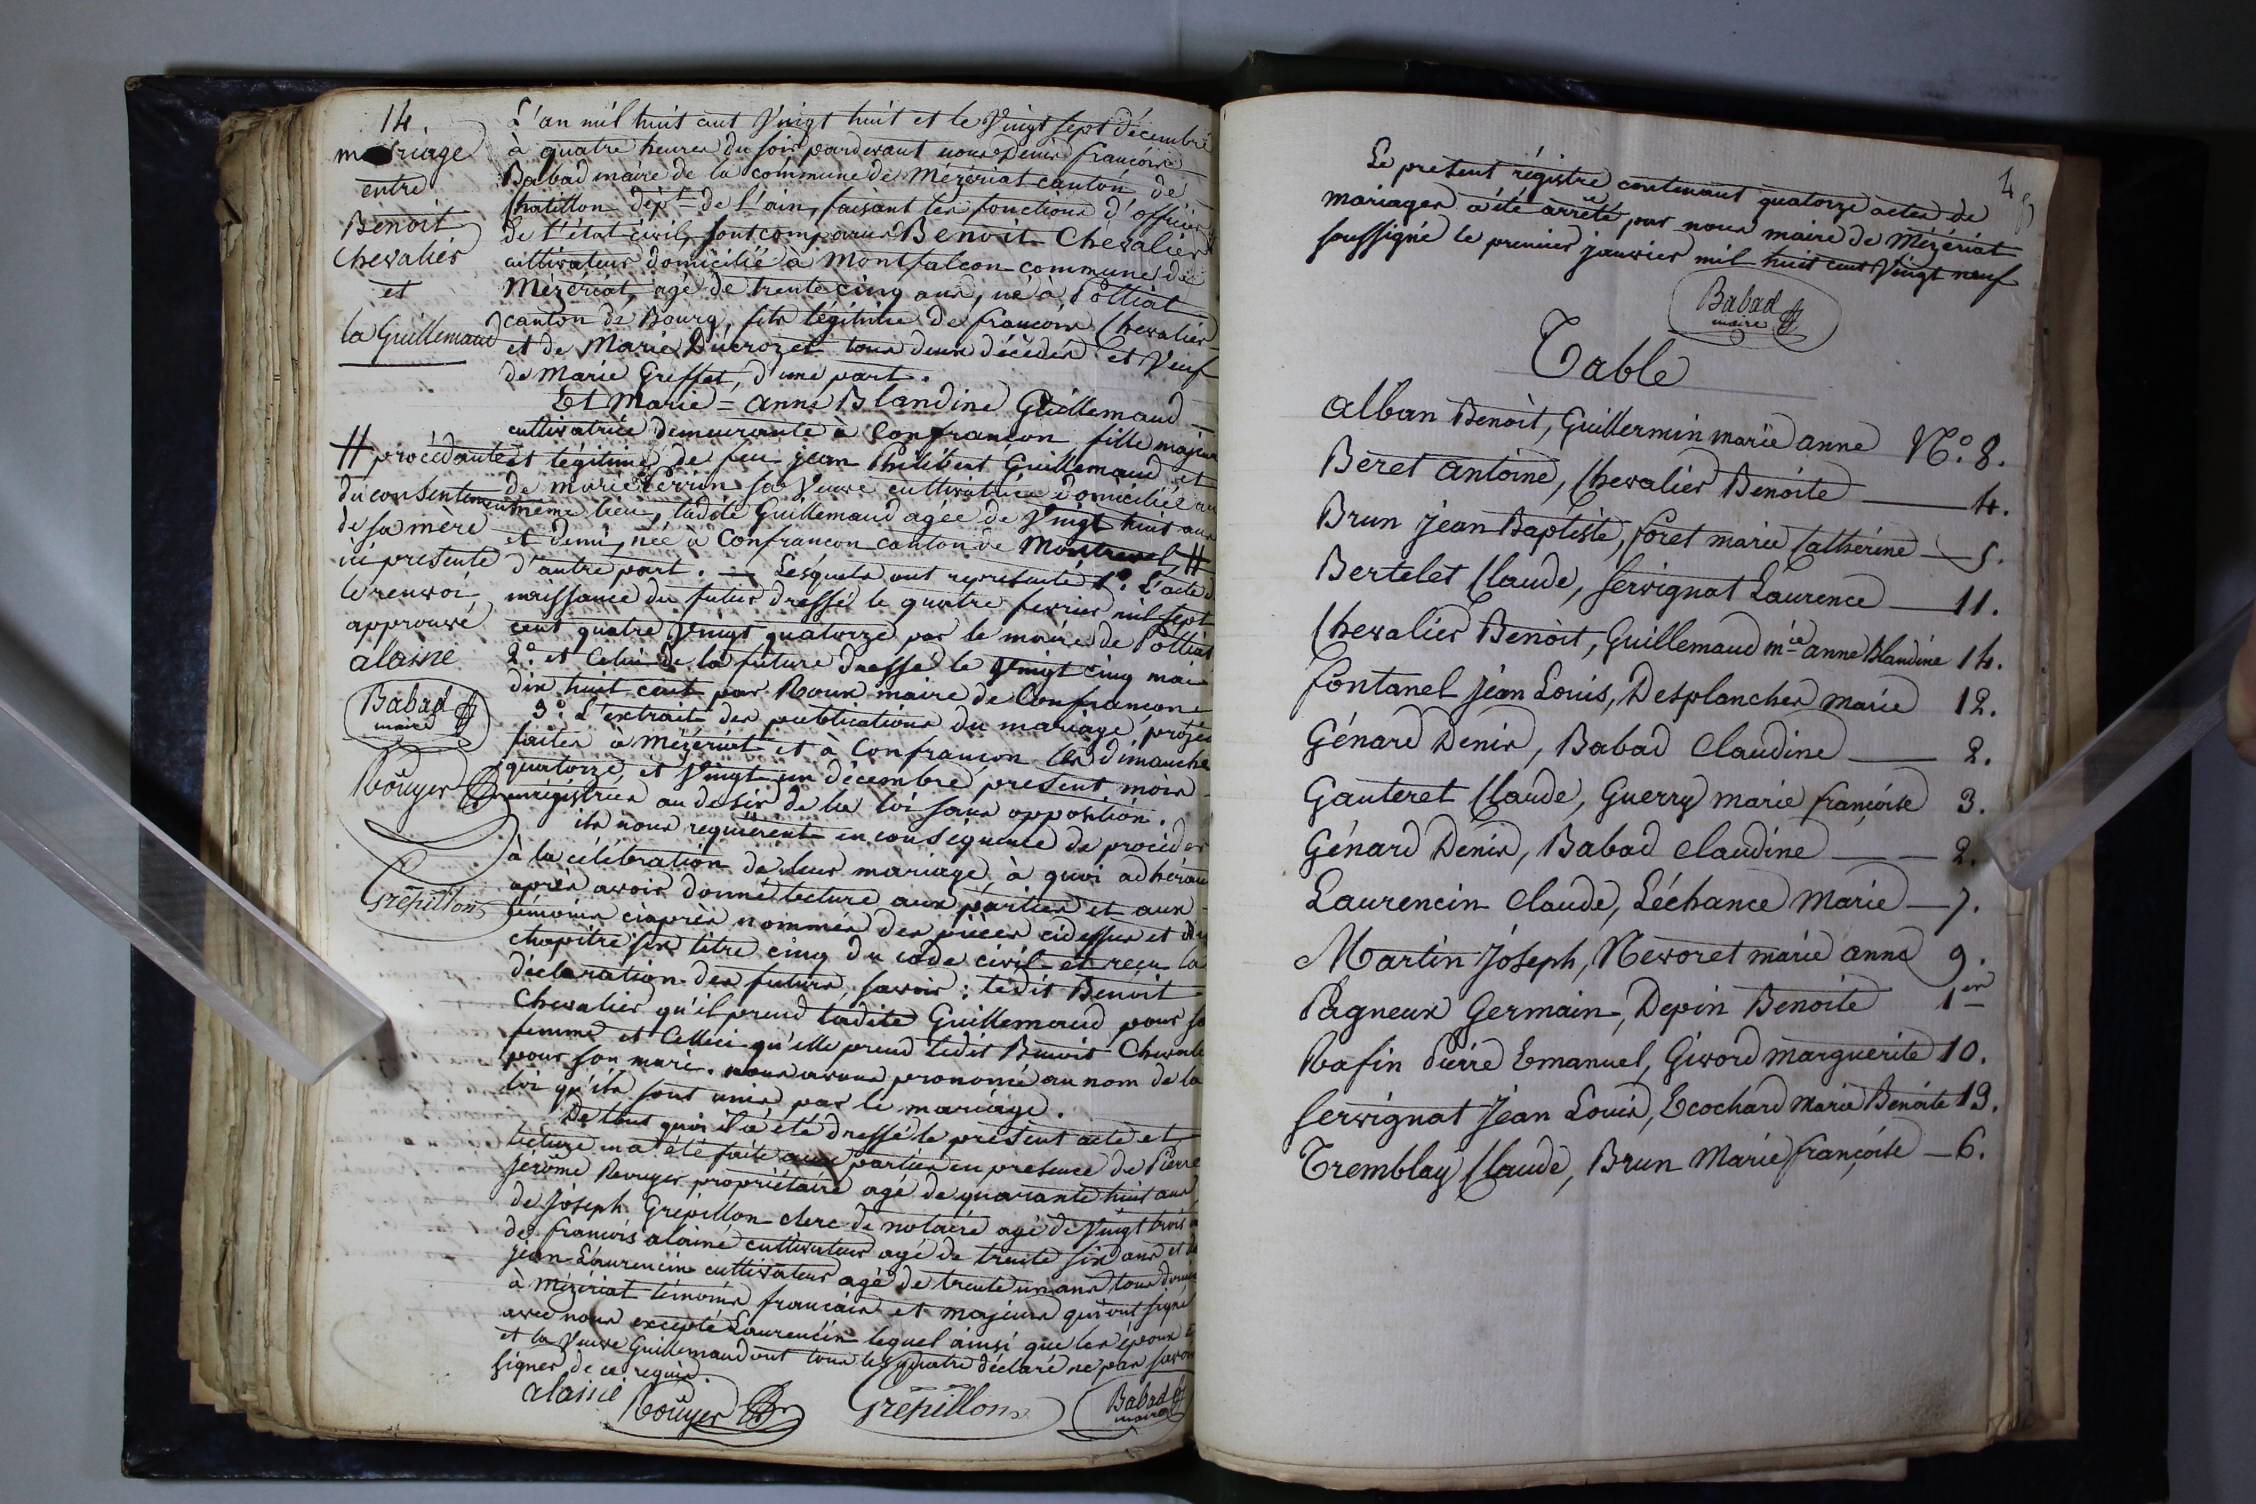 14.
mariage
entre
Benoit
Chevalier
et
la Guillemaud
L'an mil huit cent Vingt huit et le Vingt sept décembre
à quatre heures du soir pardevant nous Denis françois
Babad maire de la commune de Mézériat canton de
Chatillon dépt. de l'ain, faisant les fonctions d'officier
de l'état civil, sont comparus Benoit Chevalier
cultivateur domicilié à Montfalcon commune de
Mézériat, agé de trente cinq ans, né à Polliat
canton de Bourg, fils légitime de françois Chevalier
et de Marie Ducrozet tous deux décédés et Veuf
de Marie Greffet, d'une part.
Et Marie = anne Blandine Guillemaud
cultivatrice demeurante à Confrançon fille majeure
et légitime de feu jean Philibert Guillemaud et
de marie Perrin sa Veuve cultivatrice domiciliée au
même lieu, ladite Guillemaud agée de Vingt huit ans
et demi, née à Confrançon canton de Montrevel, #
d'autre part. — Lesquels ont représenté 1º. L'acte de
naissance du futur dressé le quatre fevrier mil sept
cent quatre Vingt quatorze par le maire de Polliat
2º. et Celui de la future dressé le Vingt cinq mai
dix huit cent par Roux maire de Confrançon
3º. L'extrait des publications du mariage projeté
faites à Mézériat et à Confrançon les dimanches
quatorze et Vingt un décembre present mois
enrégistrées au desir de la loi sans opposition.
ils nous requièrent en conséquence de procéder
à la célébration de leur mariage, à quoi adhérant
après avoir donné lecture aux parties et aux
témoins ciaprès nommés des pièces cidessus et du
chapitre six titre cinq du code civil et reçu la
déclaration des futurs, savoir: ledit Benoit
Chevalier qu'il prend ladite Guillemaud pour sa
femme et Celleci qu'elle prend ledit Benoit Chevalier
pour son mari. nous avons prononcé au nom de la
loi qu'ils sont unis par le mariage.
De tout quoi il a été dressé le présent acte et
lecture en a été faite aux parties en presence de Pierre
Jérôme Rouyer propriétaire agé de quarante huit ans,
de Joseph Grépillon clerc de notaire agé de Vingt trois ans
de françois alainé cultivateur agé de trente six ans et de
jean Laurencin cultivateur agé de trente un ans tous domiciliés
à Mézériat témoins français et majeurs qui ont signé
avec nous excepté Laurencin lequel ainsi que les époux
et la Veuve Guillemaud ont tous les quatre déclaré ne pas savoir
signer de ce requis.
alainé Rouyer Grépillon Babad
maire
# procédante
du consentement
de sa mère
ici presente
le renvoi
approuvé
alainé
Babad
maire
Rouyer
Grépillon
Le present régistre contenant quatorze actes de
mariages a été arrêté par nous maire de Mézériat
soussigné le premier janvier mil huit cent Vingt neuf
Babad
maire
Table
Alban Benoit, Guillermin marie anne Nº. 8.
Béret antoine, Chevalier Benoite — 4.
Brun Jean Baptiste, foret marie Catherine — 5.
Bertelet Claude, Servignat Laurence — 11.
Chevalier Benoit, Guillemaud mie anne Blandine 14.
fontanel jean Louis, Desplanches marie 12.
Génard Denis, Babad Claudine — 2.
Gauteret Claude, Guerry marie françoise 3.
Génard Denis, Babad Claudine — 2.
Laurencin Claude, Léchance Marie — 7.
Martin Joseph, Nevoret marie anne 9.
Pagneux Germain, Depin Benoite 1er
Rafin Pierre Emanuel, Givord marguerite 10.
Servignat Jean Louis, Ecochard Marie Benoite 13.
Tremblay Claude, Brun Marie françoise — 6.